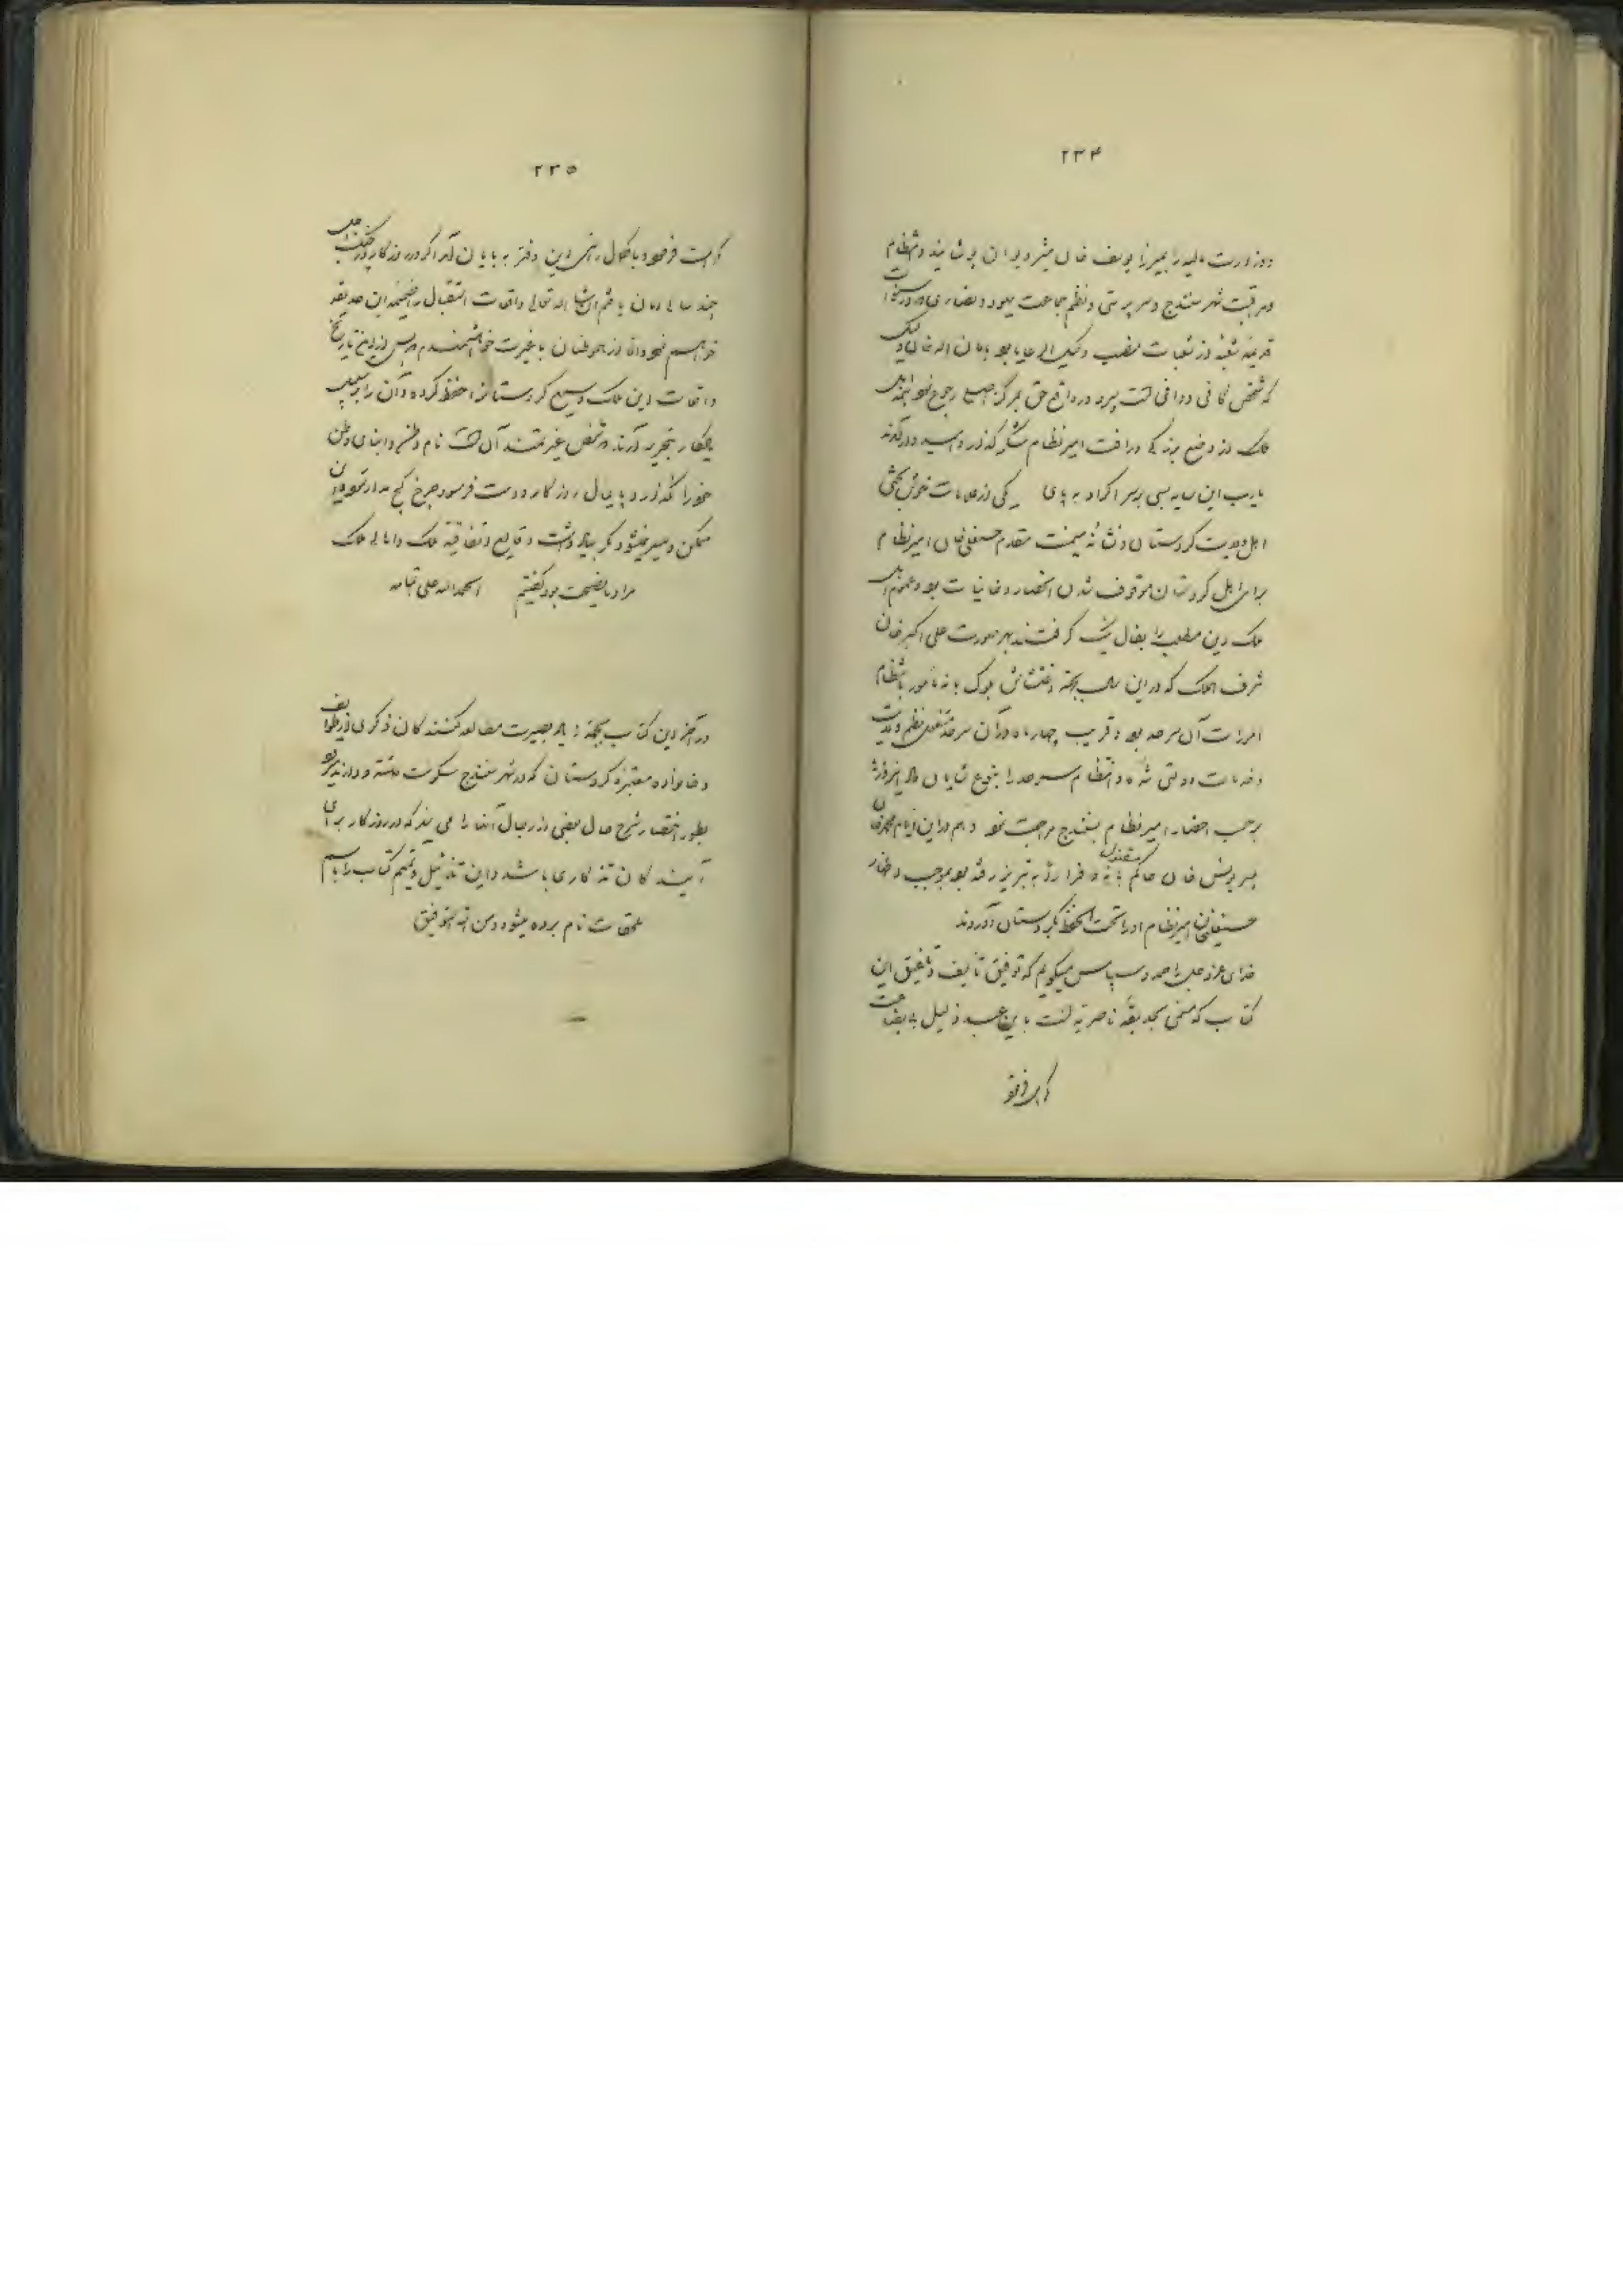 ۲۳۴
وزارت مالیه را بمیرزا یوسف خان مشیر دیوان پوشانید و انتظام
و مراقبت شهر سنندج و سرپرستی و نظم جماعت یهود و نصاری که در سنوات
قدیمه شعبه از شعبات منصب وکیل الرعایا بود بامان اله خان وکیل
که شخص کافی و وافی است سپرد در واقع حق بمرکز اصلی رجوع نمود همه اهل
ملک از وضع بزرگی و رافت امیرنظام متشکر گذار و امیدوار گردیدند
یارب این سایه بسی بر سر اکراد به پای یکی از علامات خوش بختی
اهل ولایت کردستان و نشانه میمنت مقدم حسنعلی خان امیرنظام
برای اهل کردستان موقوف شدن انحصار دخانیات بود و عموم اهل
ملک این مطلب را بفال نیک گرفتند بهر صورت علی اکبر خان
شرف الملک که در این سال بجهة اغتشاش بلوک بانه مامور بانتظام
امورات آن سرحد بود و قریب چهار ماه در آن سرحد مشغول نظم ولایت
و خدمات دولتی شده و انتظام سرحد را بنوع شایان داد
برحسب احضار امیرنظام بسنندج مراجعت نمود و هم در این ایام محمد خان
پسر یونس خان حاکم مقتول بانه که فرارا به تبریز رفته بود بموجب احضار
حسنعلی خان امیرنظام او را تحت الحفظ بکردستان آوردند
خدای عزوجل را حمد و سپاس میگویم که توفیق تألیف و تلفیق این
کتاب که مسمی بحدیقه ناصریه است باین عبد ذلیل بی بضاعت
کرامت فرمود
۲۳۵
کرامت فرمود و باکمال این دفتر به پایان آمد اگر در روزگار
چند سالی امان یافتم انشاء اله تعالی واقعات استقبال را ضمیمه این حدیقه
خواهم نمود والا از هموطنان با غیرت خواهشمندم پس از این تاریخ
واقعات این ملک وسیع کردستان را حفظ کرده و آن را
بتحریر آرند شخص غیرتمند آن است نام وطن و ابنای وطن
خود را نگذارد پایمال روزگار و دست فرسود چرخ کج مدار شود
ممکن و میسر نمیشود مگر بیادداشت وقایع اتفاقیه ملک و اهالی ملک
مراد ما نصیحت بود گفتیم الحمدالله علی اتمامه
در آخر این کتاب بجهة ازدیاد بصیرت مطالعه کنندگان ذکری از طوایف
و خانواده معتبره کردستان که در شهر سنندج سکونت داشته و دارند
بطور اختصار شرح حال بعضی از رجال آنها را می نماید که در روزگار برای
آیندگان تذکاری باشد و این تذییل و تتمیم کتاب را باسم
ملحقات نام برده میشود و من الله التوفیق